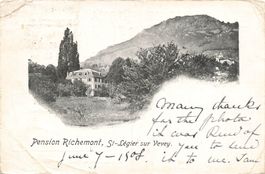 Pension Richemont, St-Légier sur Vevey.
Many thanks
for the photo
it was kind of
you to send
it to me.
June 7-1908.